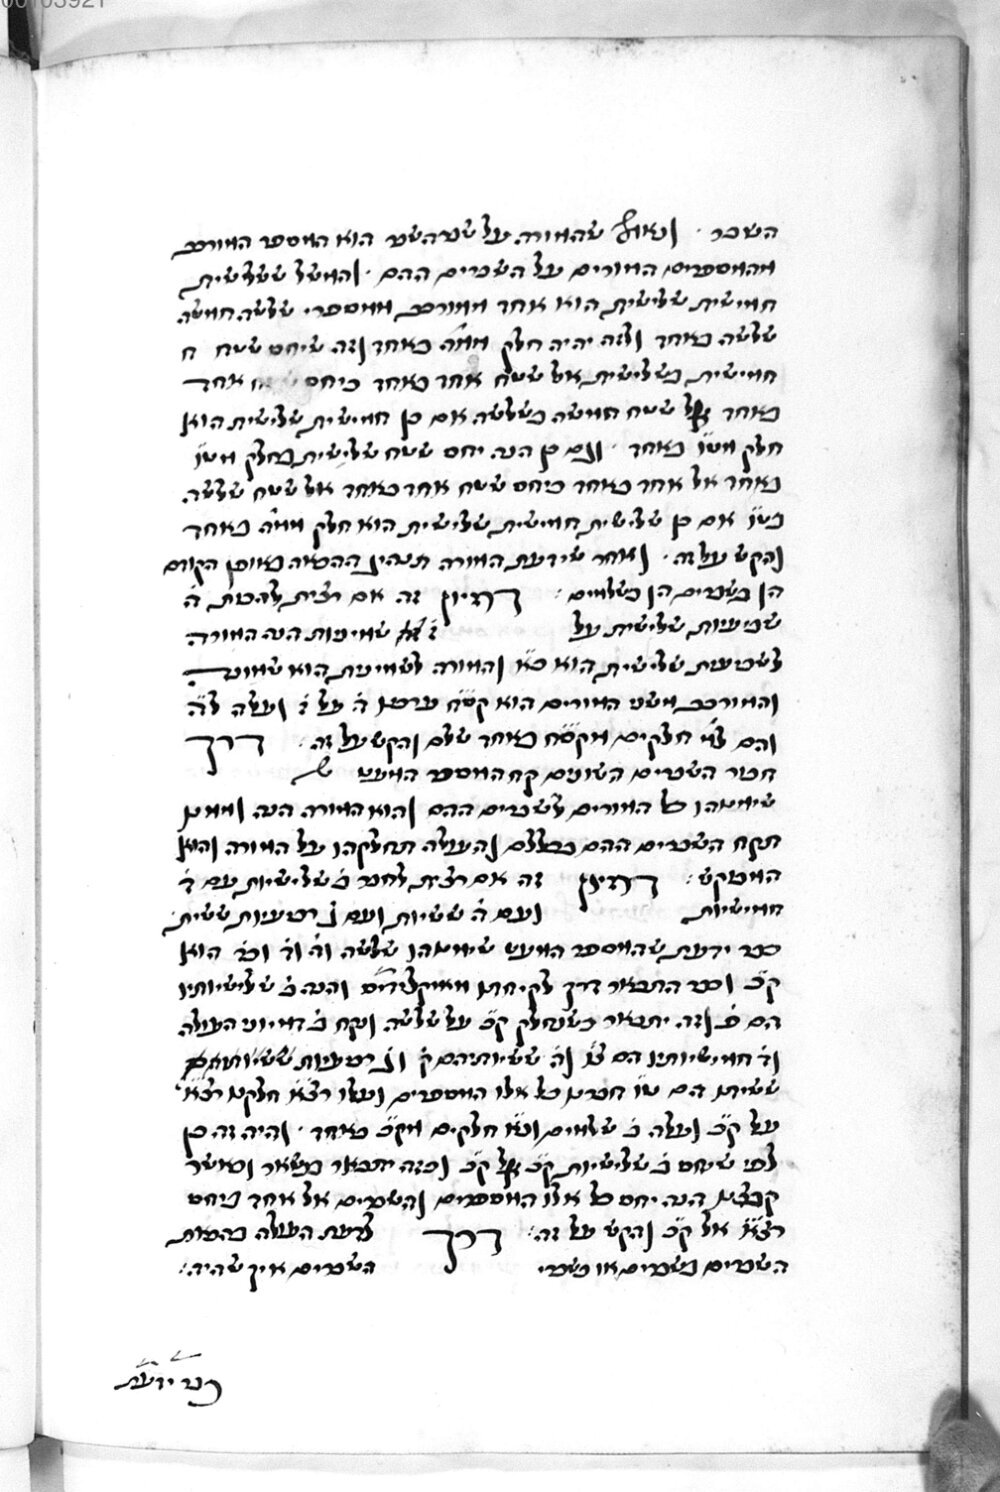 השבר · ונאמר שהמורה על שבר השבר הוא המספר המורכב
מהמספרים המורים על השברים ההם · והמשל ששלישית
חמישית שלישית הוא אחד ממורכב ממספרי שלשה חמשה
שלשה כאחד ולזה יהיה חלק ממ"ה כאחד וזה שיחס שטח ח
חמישית בשלישית אל שטח אחד כאחד כיחס שטח אחד
כאחד אל שטח חמשה בשלשה אם כן חמישית שלישית הוא
חלק מט"ו כאחד · וגם כן הנה יחס שטח שלישית בחלק מט"ו
כאחד אל אחד כאחד כיחס שטח אחד כאחד אל שטח שלשה
בט"ו אם כן שלישית חמישית שלישית הוא חלק ממ"ה כאחד
והקש על זה · ואחר שידעת המורה תנהיג ההכאה באופן הקודם
הן בשברים הן בשלמים : דמיון זה אם רצית להכות ה'
שביעיות שלישית על ז' שמיניות הנה המורה
לשביעית שלישית הוא כ"א והמורה לשמינית הוא שמונה
והמורכב משני המורים הוא קס"ח ערכנו ה' על ז' ועלה ל"ה
והם ל"ה חלקים מקס"ח כאחד שלם והקש על זה : דרך
חבור השברים השונים קח המספר המעט ש
שימנהו כל המורים לשברים ההם והוא המורה הנה וממנו
תקח השברים ההם בכללם והעולה תחלקהו על המורה והוא
המבוקש : דמיון זה אם רצית לחבר ב' שלישיות עם ד'
חמישיות ועם ה' ששיות ועם ג' רביעיות ששית ·
כבר ידעת שהמספר המעט שימנהו שלשה וה' וד' וכו' הוא
ק"כ וכבר התבאר דרך לקיחתו מאיקלידס והנה ב' שלישיותיו
הם פ' וזה יתבאר כשנחלק ק"כ על שלשה ונקח ב' דמיוני העולה
וד' חמישיותיו הם צ"ו וה' ששיותיהם ק' וג' רביעיות
ששיתו הם ט"ו חברנו כל אלו המספרים ועלו רצ"א חלקנו רצ"א
על ק"כ ועלה ב' שלמים ונ"א חלקים מק"כ כאחד · והיה זה כן
לפי שיחס ב' שלישיות ק"כ אל ק"כ וכזה יתבאר בשאר וכאשר
קבצנו הנה יחס כל אלו המספרים והשברים אל אחד כיחס
רצ"א אל ק"כ והקש על זה : דרך לדעת העולה בהכאת
השברים בשברים או בשברי השברים איך שהיה :
כבר ידעת